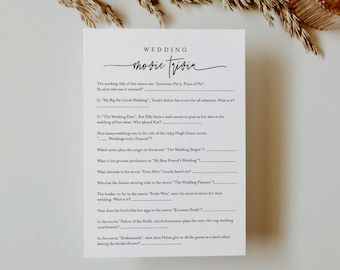 WEDDING
movie trivia
The working title of this movie was "
By what title was it released?
In "My Big Fat Greek Wedding", Toula's father has a cure for all ailments. What is it?
In "The Wedding Date", Kat Ellis hires a male escort to pose as her date to the
wedding of her sister. Who played Kat?
How many weddings are in the title of the 1994 Hugh Grant movie,
"____ Weddings and a Funeral"?
Which actor plays the singer in the movie "The Wedding Singer"?
What is the groom's profession in "My Best Friend's Wedding"?
What fairytale is the movie "Ever After" loosely based on?
Who has the female starring role in the movie "The Wedding Planner"?
The brides-to-be in the movie "Bride Wars" want the same location for their
wedding. What is it?
How does the bride like her eggs in the movie "Runaway Bride"?
In the movie "Father of the Bride", Martin Short plays the over-the-top wedding
coordinator?
In the movie "Bridesmaids", what does Helen give to all the guests as a favor when
leaving the bridal shower?